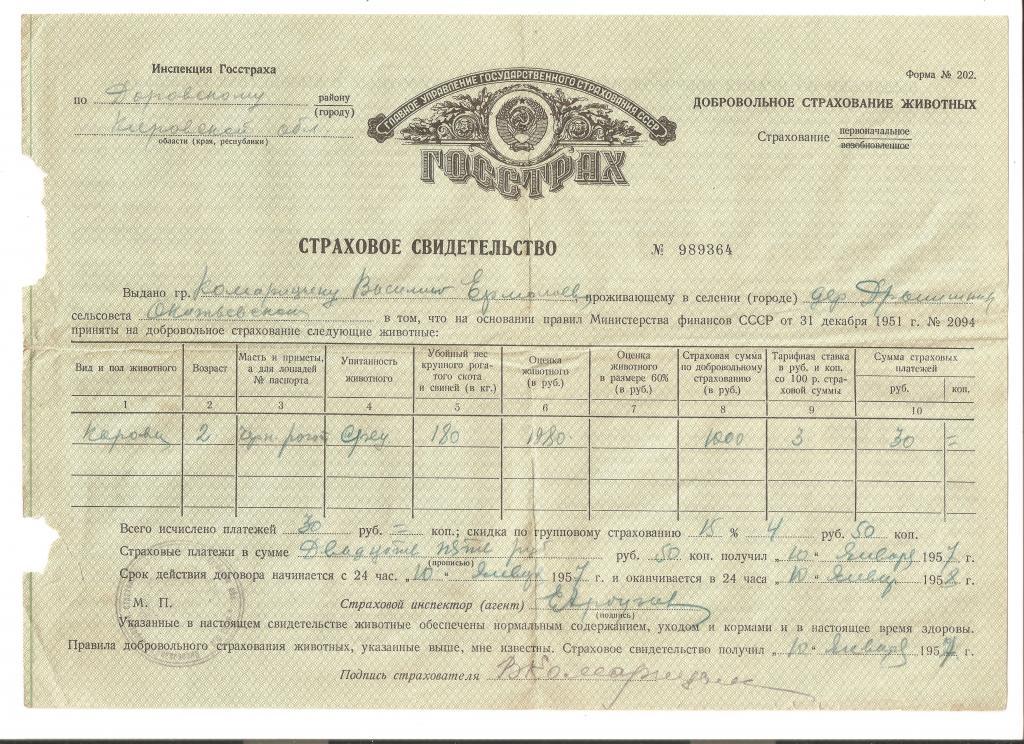 Инспекция Госстраха
по Даровскому району
(городу)
Кировской обл
области (края, республики)
ГЛАВНОЕ УПРАВЛЕНИЕ ГОСУДАРСТВЕННОГО СТРАХОВАНИЯ СССР
ГОССТРАХ
Форма № 202.
ДОБРОВОЛЬНОЕ СТРАХОВАНИЕ ЖИВОТНЫХ
Страхование первоначальное
возобновленное
СТРАХОВОЕ СВИДЕТЕЛЬСТВО № 989364
Выдано гр. Комарицыну Василию проживающему в селении (городе) дер.
сельсовета в том, что на основании правил Министерства финансов СССР от 31 декабря 1951 г. № 2094
приняты на добровольное страхование следующие животные:
Вид и пол животного
Возраст
Масть и приметы, а для лошадей № паспорта
Упитанность животного
Убойный вес крупного рогатого скота и свиней (в кг.)
Оценка животного (в руб.)
Оценка животного в размере 60% (в руб.)
Страховая сумма по добровольному страхованию (в руб.)
Тарифная ставка в руб. и коп. со 100 р. страховой суммы
Сумма страховых платежей
руб. коп.
1 2 3 4 5 6 7 8 9 10
2 сред 180 1980 1000 3 30 =
Всего исчислено платежей 30 руб. = коп.; скидка по групповому страхованию 15 % 4 руб. 50 коп.
Страховые платежи в сумме Двадцать пять руб руб. 50 коп. получил „10" Января 1957 г.
(прописью)
Срок действия договора начинается с 24 час. „10" января 1957 г. и оканчивается в 24 часа „10" января 1958 г.
М. П. Страховой инспектор (агент)
(подпись)
Указанные в настоящем свидетельстве животные обеспечены нормальным содержанием, уходом и кормами и в настоящее время здоровы.
Правила добровольного страхования животных, указанные выше, мне известны. Страховое свидетельство получил „10" Января 1957 г.
Подпись страхователя